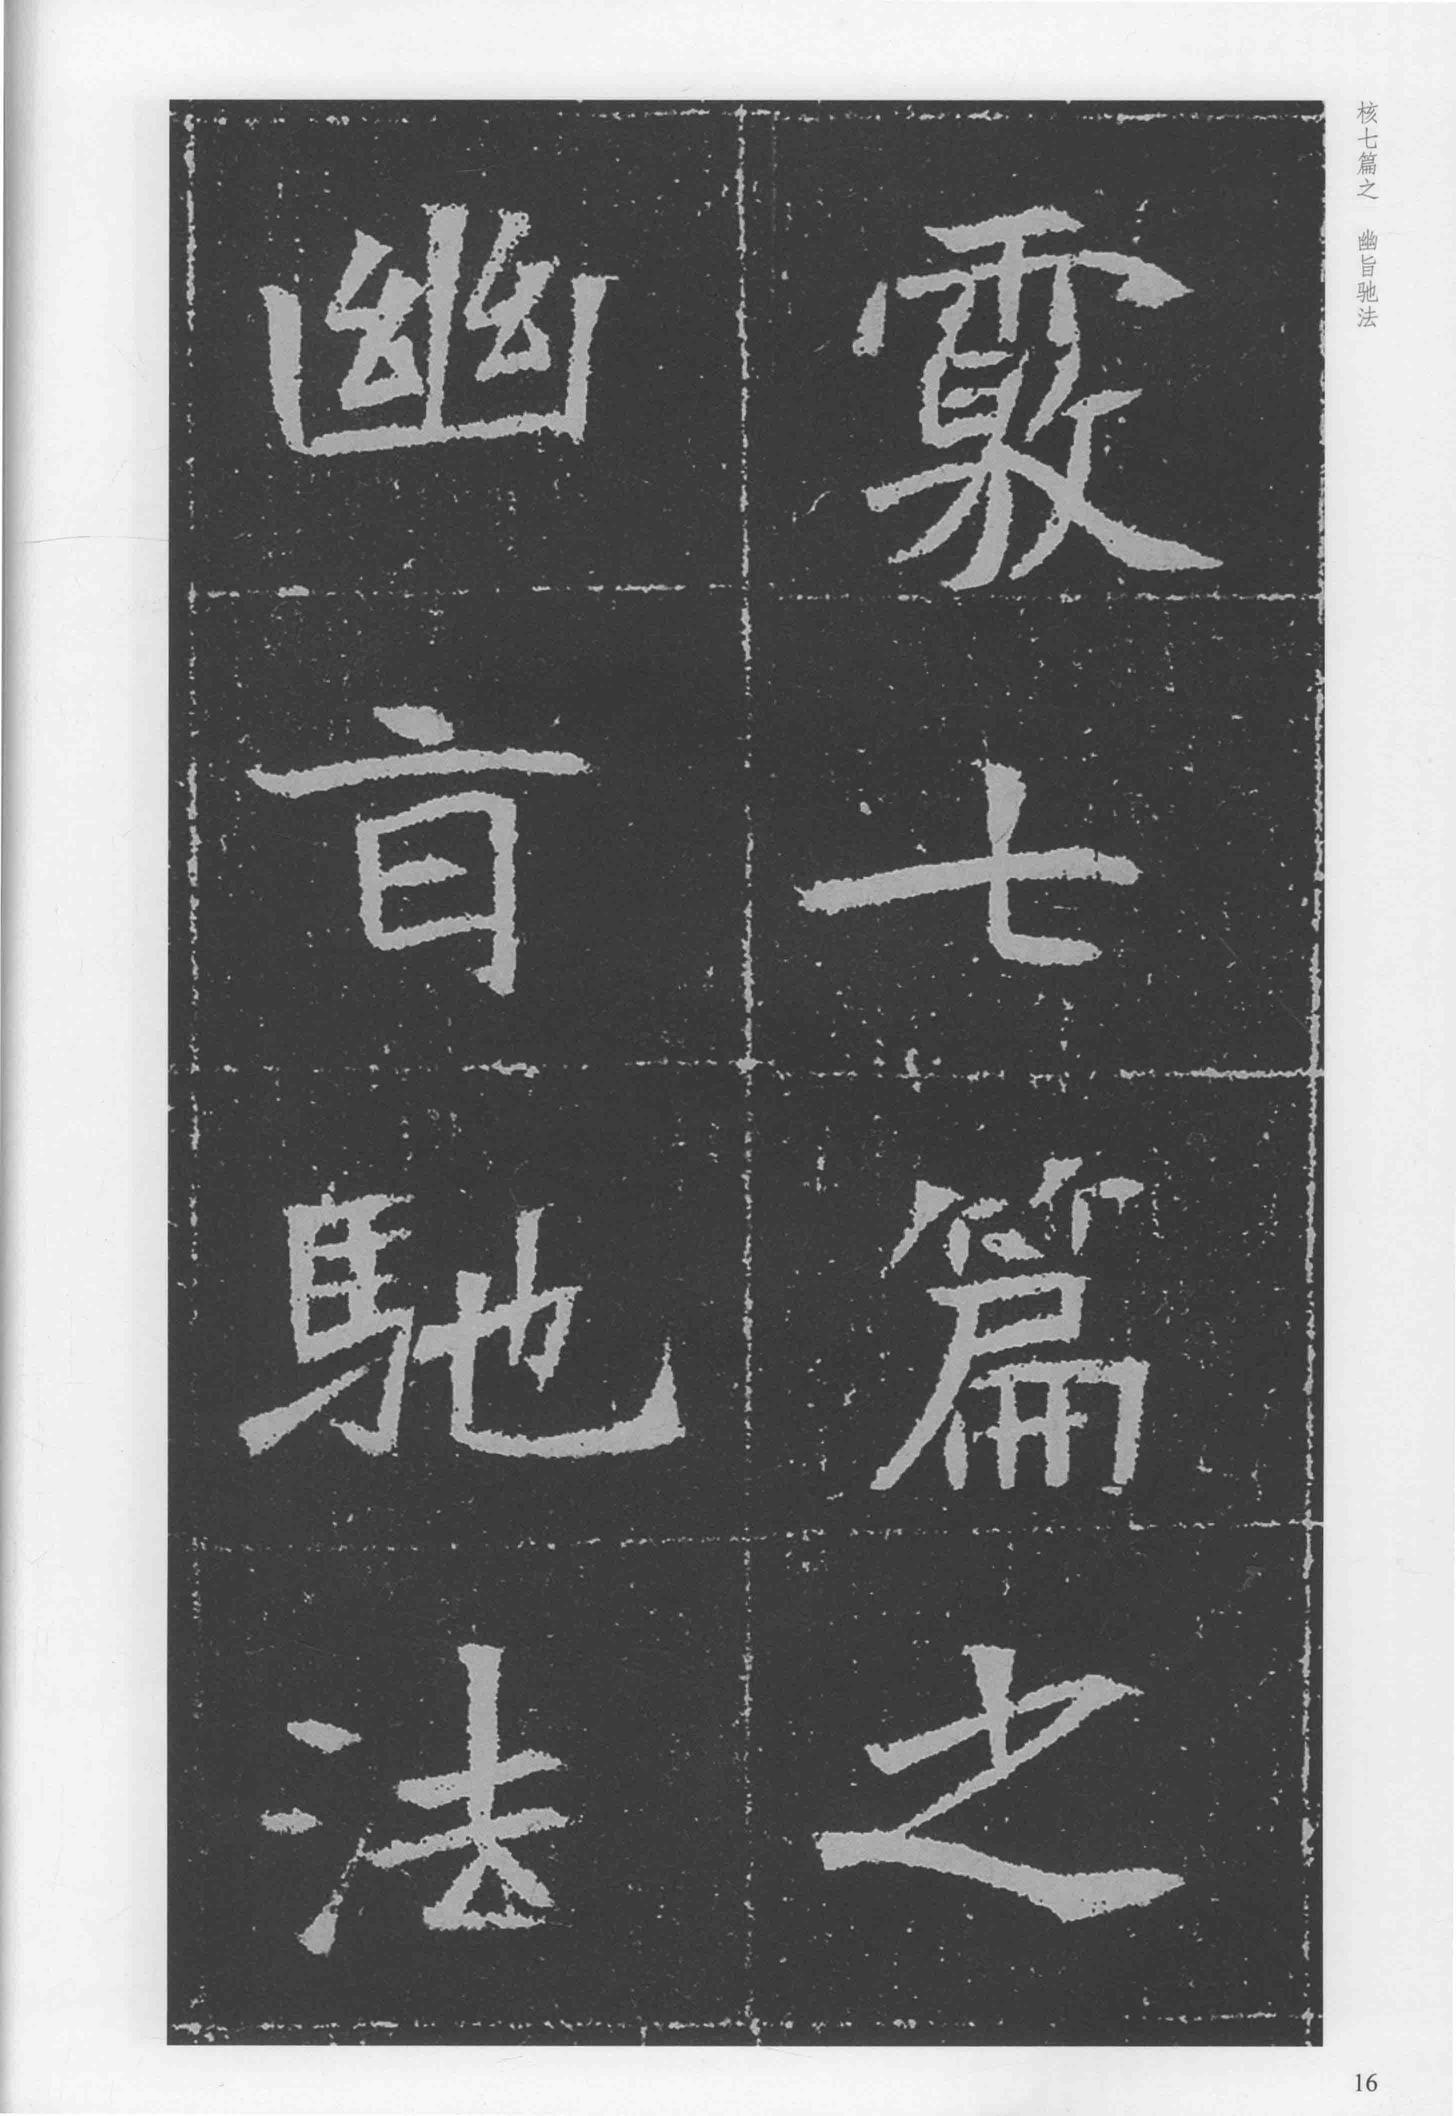 核七篇之 幽旨驰法
覈七篇之
幽旨馳法
16